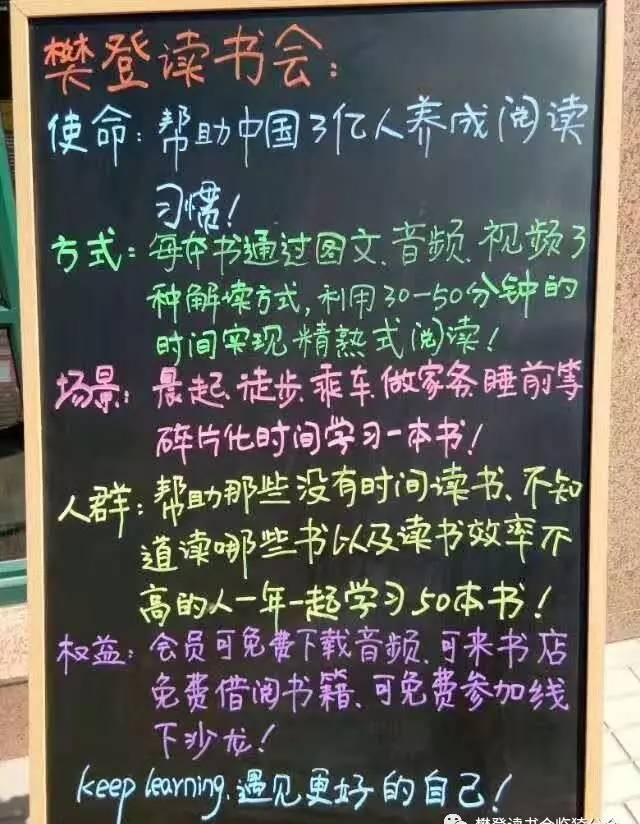 樊登读书会：
使命：帮助中国3亿人养成阅读
习惯！
方式：每本书通过图文、音频、视频3
种解读方式，利用30-50分钟的
时间实现精熟式阅读！
场景：晨起、徒步、乘车、做家务、睡前等
碎片化时间学习一本书！
人群：帮助那些没有时间读书、不知
道读哪些书以及读书效率不
高的人一年一起学习50本书！
权益：会员可免费下载音频、可来书店
免费借阅书籍、可免费参加线
下沙龙！
keep learning.遇见更好的自己！
樊登读书会临猗分会